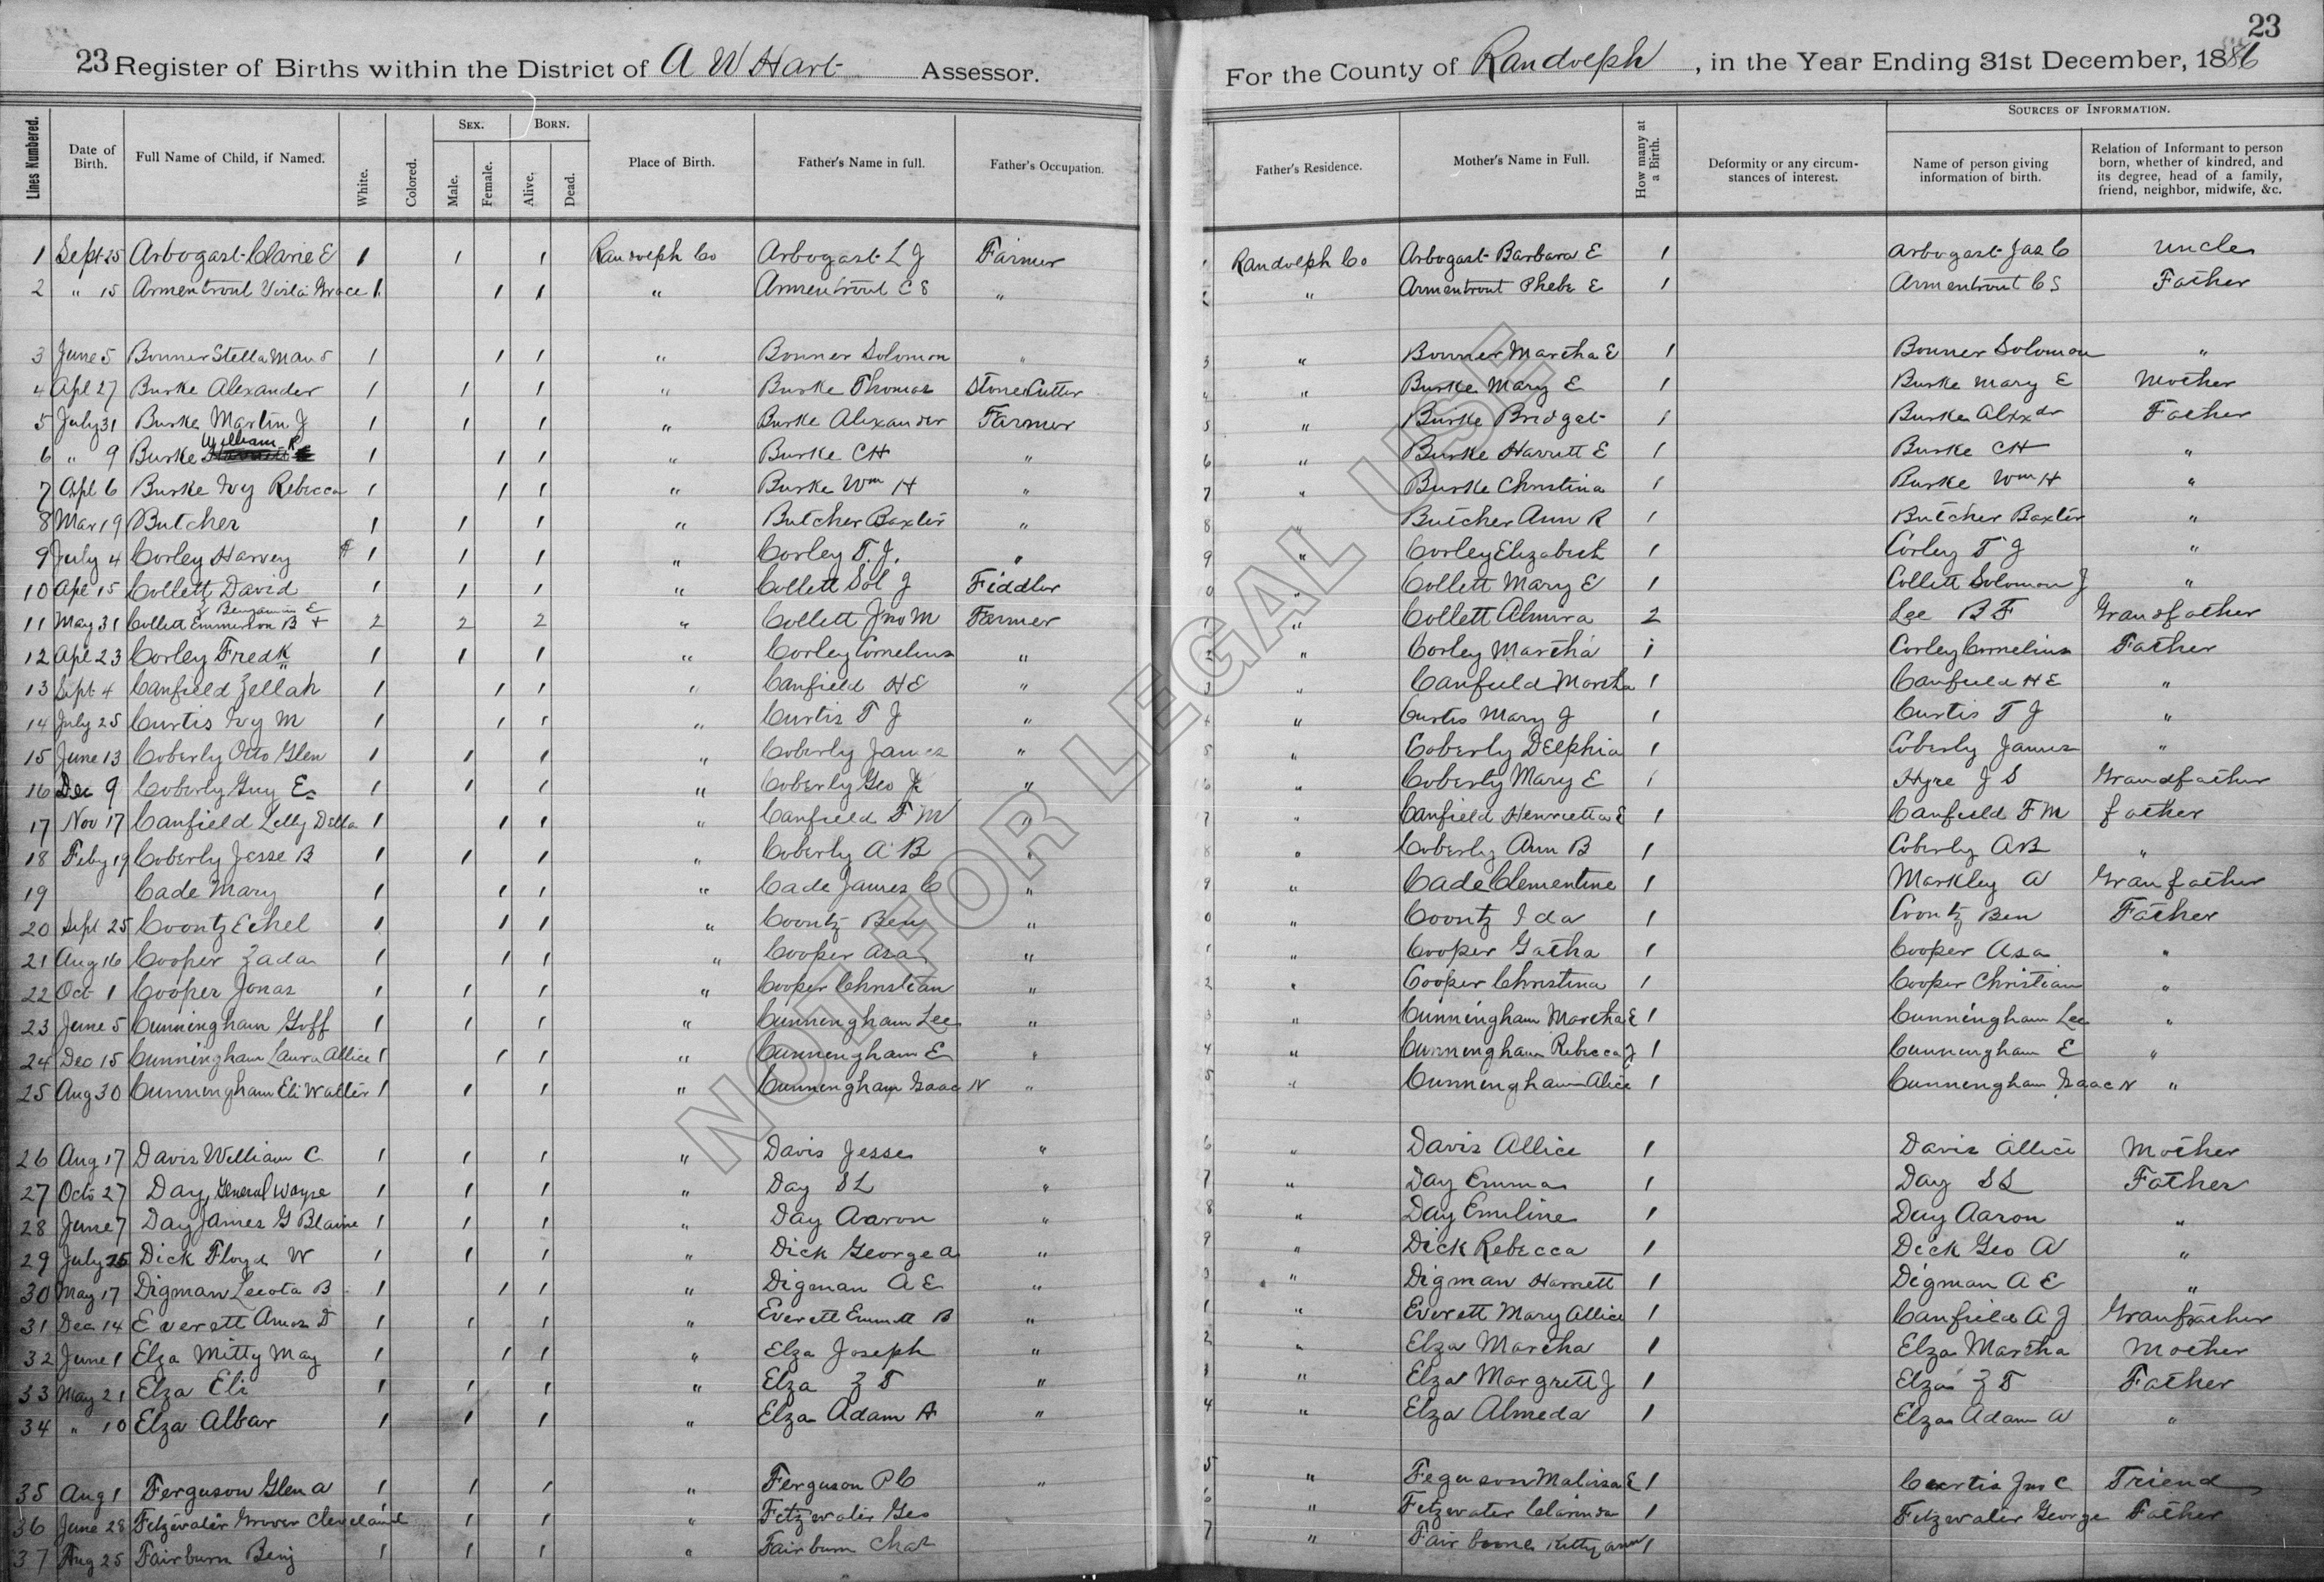 23 Register of Births within the District of A W Hart Assessor.
For the County of Randolph, in the Year Ending 31st December, 1886
23
Lines Numbered. Date of Birth. Full Name of Child, if Named. White. Colored. Sex. Male. Female. Born. Alive. Dead. Place of Birth. Father's Name in full. Father's Occupation.
Father's Residence. Mother's Name in Full. How many at a Birth. Deformity or any circumstances of interest. Sources of Information. Name of person giving information of birth. Relation of Informant to person born, whether of kindred, and its degree, head of a family, friend, neighbor, midwife, &c.
1 Sept 25 Arbogast Clarie E 1 1 1 Randolph Co Arbogast L J Farmer Randolph Co Arbogast Barbara E 1 Arbogast Jas C Uncle
2 " 15 Armentrout Grace 1 1 1 " Armentrout C S " " Armentrout Phebe E 1 Armentrout C S Father
3 June 5 Bonner Stella Maud 1 1 1 " Bonner Solomon " " Bonner Martha E 1 Bonner Solomon "
4 Apl 27 Burke Alexander 1 1 1 " Burke Thomas Stone Cutter " Burke Mary E 1 Burke Mary E Mother
5 July 31 Burke Martin J 1 1 1 " Burke Alexander Farmer " Burke Bridget 1 Burke Alexdr Father
6 " 9 Burke William R 1 1 1 " Burke C H " " Burke Harrett E 1 Burke C H "
7 Apl 6 Burke Ivy Rebecca 1 1 1 " Burke Wm H " " Burke Christina 1 Burke Wm H "
8 Mar 19 Butcher 1 1 1 " Butcher Baxter " " Butcher Ann R 1 Butcher Baxter "
9 July 4 Corley Harvey 1 1 1 " Corley T. J. " " Corley Elizabeth 1 Corley T J "
10 Apl 15 Collett David 1 1 1 " Collett Sol J Fiddler " Collett Mary E 1 Collett Solomon J "
11 May 31 Collett Emmerson B & Benjamin E 2 2 2 " Collett Jno M Farmer " Collett Almira 2 Lee B F Grandfather
12 Apl 23 Corley Fredk 1 1 1 " Corley Cornelius " " Corley Martha 1 Corley Cornelius Father
13 Sept 4 Canfield Zellah 1 1 1 " Canfield H E " " Canfield Martha 1 Canfield H E "
14 July 25 Curtis Ivy M 1 1 1 " Curtis T J " " Curtis Mary J 1 Curtis T J "
15 June 13 Coberly Otto Glen 1 1 1 " Coberly James " " Coberly Delphia 1 Coberly James "
16 Dec 9 Coberly Guy E 1 1 1 " Coberly Geo " " Coberly Mary E 1 Hyre J S Grandfather
17 Nov 17 Canfield Lelly Della 1 1 1 " Canfield F M " " Canfield Henrietta E 1 Canfield F M father
18 Feby 19 Coberly Jesse B 1 1 1 " Coberly A B " " Coberly Ann B 1 Coberly A B "
19 Cade Mary 1 1 1 " Cade James C " " Cade Clementine 1 Markley A Granfather
20 Sept 25 Coontz Ethel 1 1 1 " Coontz Ben " " Coontz Ida 1 Coontz Ben Father
21 Aug 16 Cooper Zada 1 1 1 " Cooper Asa " " Cooper Gatha 1 Cooper Asa "
22 Oct 1 Cooper Jonas 1 1 1 " Cooper Christian " " Cooper Christina 1 Cooper Christian "
23 June 5 Cunningham Goff 1 1 1 " Cunningham Lee " " Cunningham Martha E 1 Cunningham Lee "
24 Dec 15 Cunningham Laura Allice 1 1 1 " Cunningham E " " Cunningham Rebecca J 1 Cunningham E "
25 Aug 30 Cunningham Eli Walter 1 1 1 " Cunningham Isaac N " " Cunningham Alice 1 Cunningham Isaac N "
26 Aug 17 Davis William C 1 1 1 " Davis Jesse " " Davis Allice 1 Davis Allice Mother
27 Octo 27 Day, General Wayne 1 1 1 " Day S L " " Day Emma 1 Day S L Father
28 June 7 Day James G Blaine 1 1 1 " Day Aaron " " Day Emiline 1 Day Aaron "
29 July 25 Dick Floyd W 1 1 1 " Dick George A " " Dick Rebecca 1 Dick Geo A "
30 May 17 Digman Leeota B 1 1 1 " Digman A E " " Digman Harriett 1 Digman A E "
31 Dec 14 Everett Amos D 1 1 1 " Everett Emmett B " " Everett Mary Allice 1 Canfield A J Granfather
32 June 1 Elza Mitty May 1 1 1 " Elza Joseph " " Elza Martha 1 Elza Martha Mother
33 May 21 Elza Eli 1 1 1 " Elza Z T " " Elza Margrett J 1 Elza Z T Father
34 " 10 Elza Albar 1 1 1 " Elza Adam A " " Elza Almeda 1 Elza Adam A "
35 Aug 1 Ferguson Glen A 1 1 1 " Ferguson P C " " Feguson Malissa E 1 Curtis Jno C Friend
36 June 28 Fetzwater Grover Cleveland 1 1 " Fetzwater Geo " Fetzwater Clarinda 1 Fetzwater George Father
37 Aug 25 Fairburn Benj 1 1 1 " Fairburn Chas " Fairbourne Kitty Ann 1
NOT FOR LEGAL USE